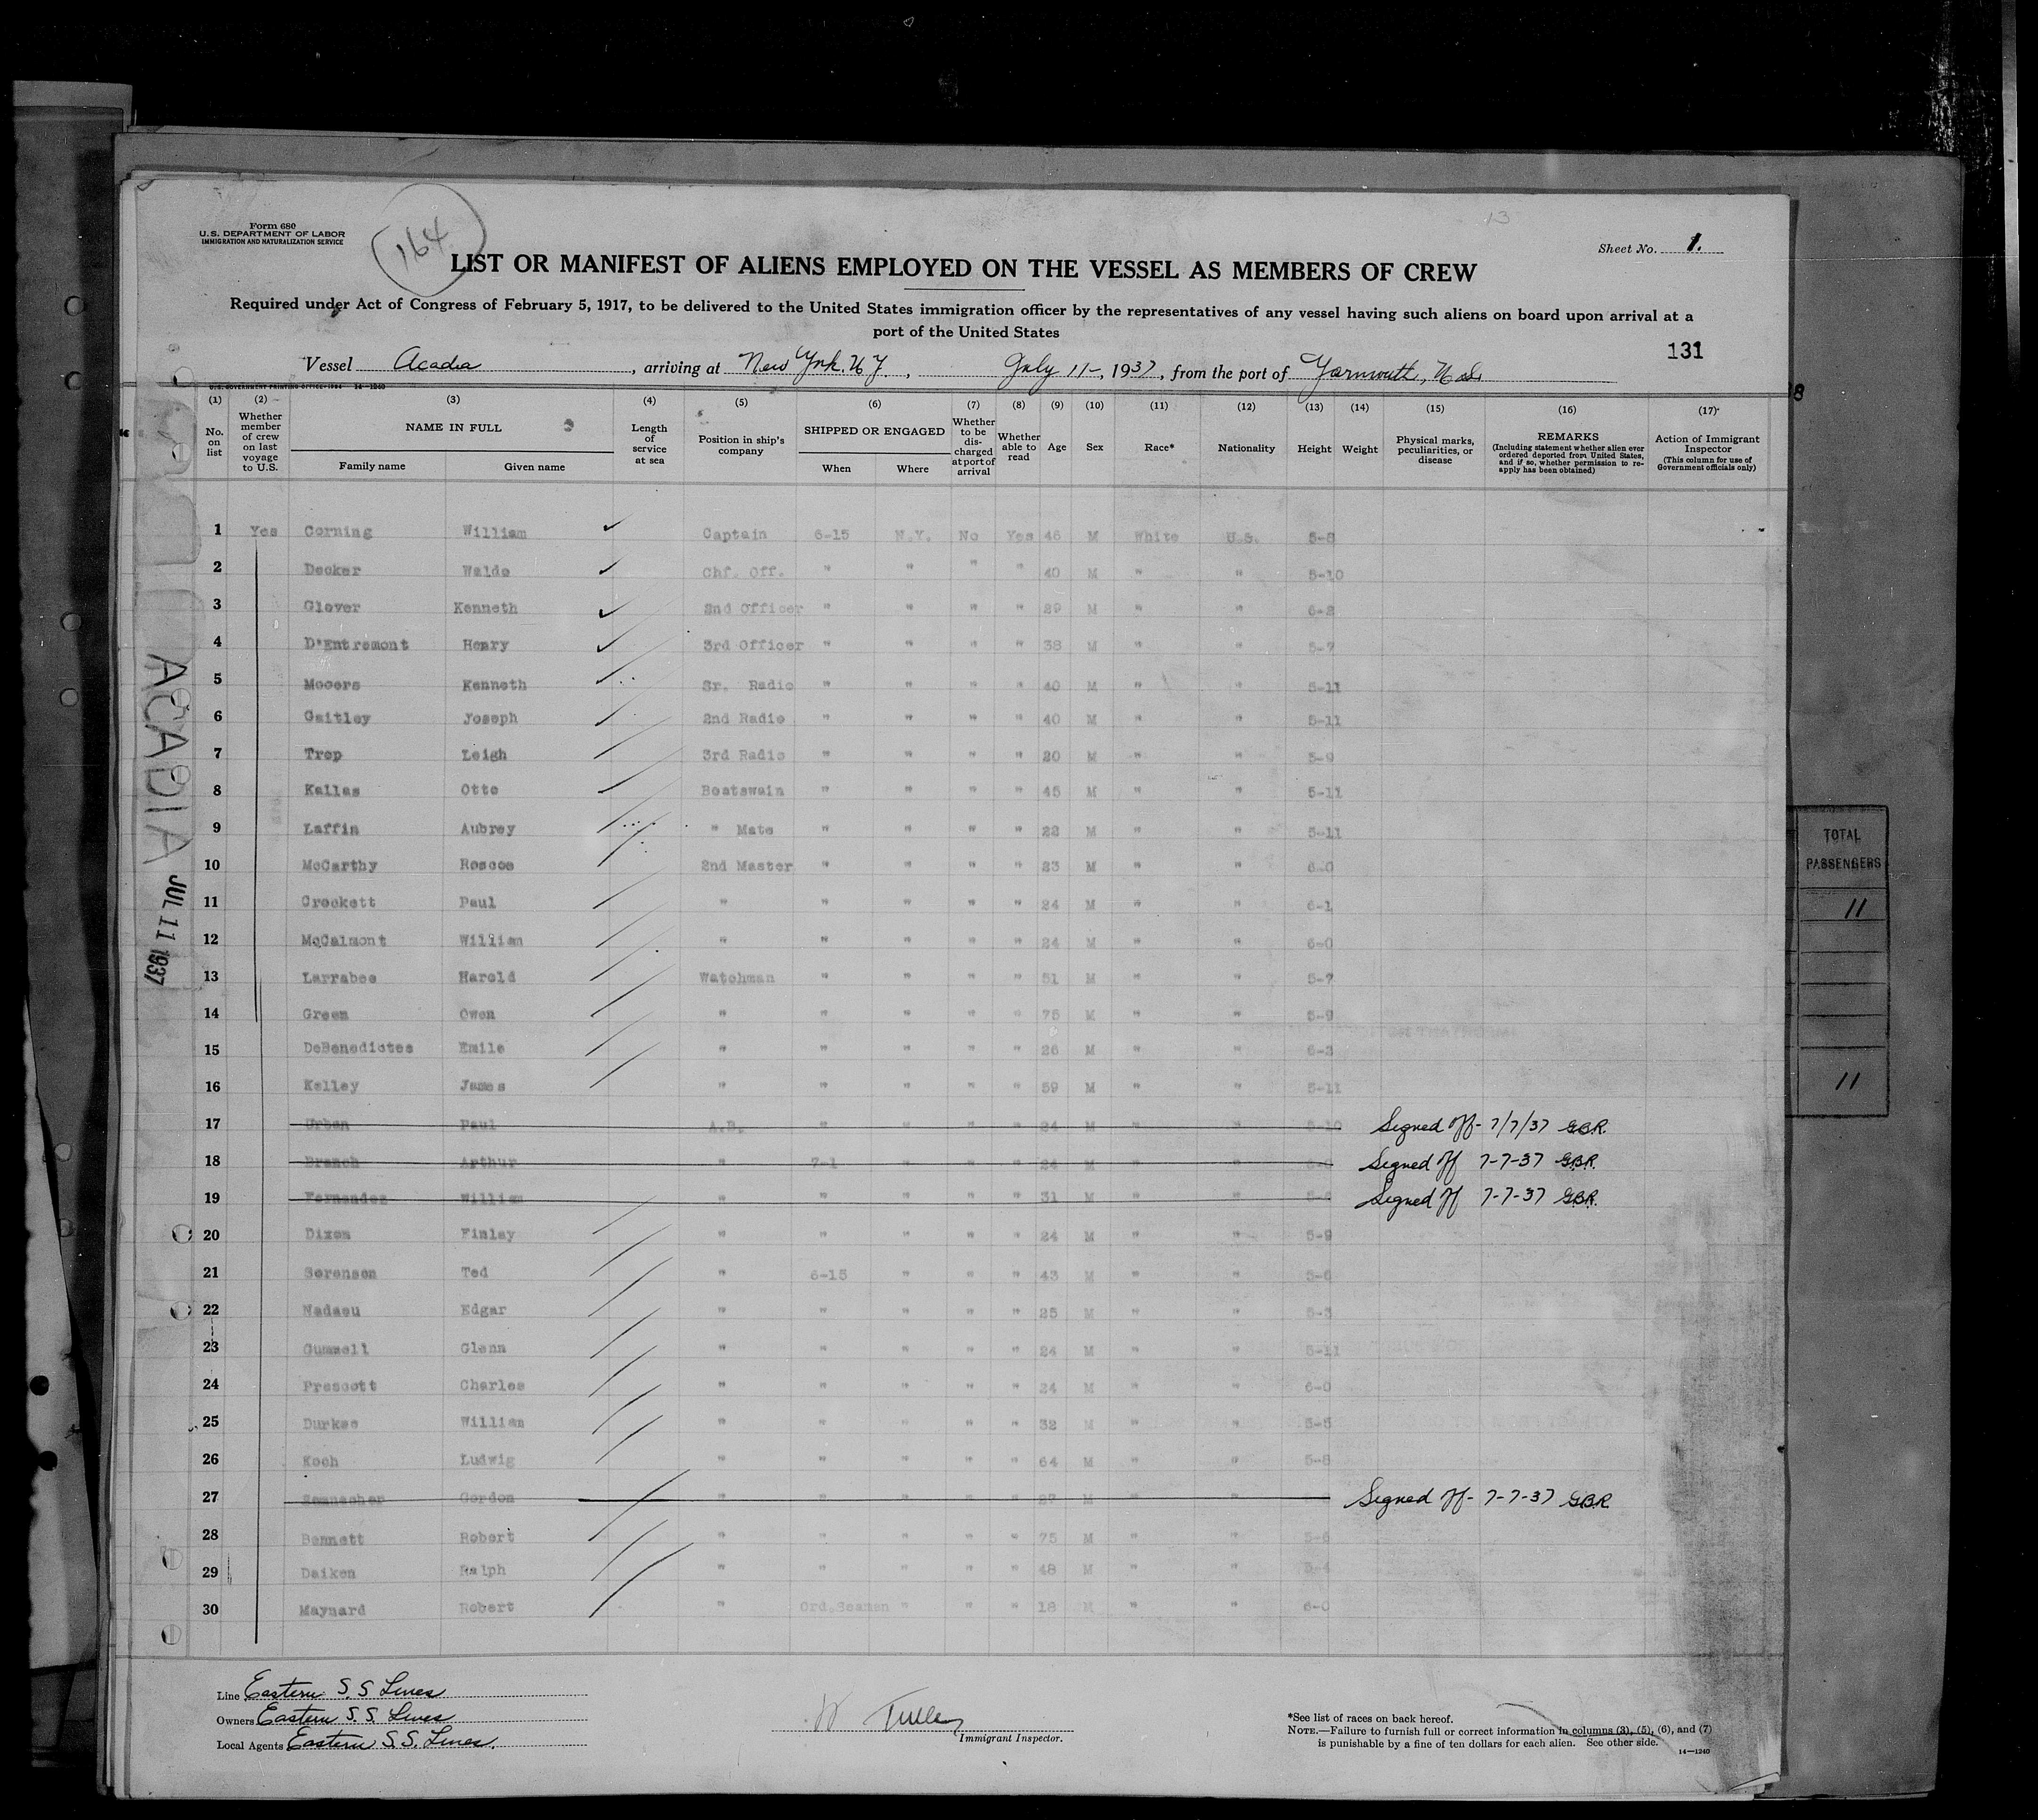 Form 680
U.S. DEPARTMENT OF LABOR
IMMIGRATION AND NATURALIZATION SERVICE
164
13
Sheet No. 1.
LIST OR MANIFEST OF ALIENS EMPLOYED ON THE VESSEL AS MEMBERS OF CREW
Required under Act of Congress of February 5, 1917, to be delivered to the United States immigration officer by the representatives of any vessel having such aliens on board upon arrival at a
port of the United States
131
Vessel Acadia, arriving at New York, N.Y., July 11-, 1937, from the port of Yarmouth, N.S.
U.S. GOVERNMENT PRINTING OFFICE: 1934 14—1240
(1) No. on list
(2) Whether member of crew on last voyage to U.S.
(3) NAME IN FULL Family name Given name
(4) Length of service at sea
(5) Position in ship's company
(6) SHIPPED OR ENGAGED When Where
(7) Whether to be discharged at port of arrival
(8) Whether able to read
(9) Age
(10) Sex
(11) Race*
(12) Nationality
(13) Height
(14) Weight
(15) Physical marks, peculiarities, or disease
(16) REMARKS (Including statement whether alien ever ordered deported from United States, and if so, whether permission to re-apply has been obtained)
(17) Action of Immigrant Inspector (This column for use of Government officials only)
1 Yes Corning William Captain 6-15 N.Y. No Yes 46 M White U.S. 5-8
2 Decker Waldo Chf. Off. " " " " 40 M " " 5-10
3 Glover Kenneth 2nd Officer " " " " 29 M " " 6-2
4 D'Entremont Henry 3rd Officer " " " " 38 M " " 5-7
5 Mooers Kenneth Sr. Radio " " " " 40 M " " 5-11
6 Gaitley Joseph 2nd Radio " " " " 40 M " " 5-11
7 Trop Leigh 3rd Radio " " " " 20 M " " 5-9
8 Kallas Otto Boatswain " " " " 45 M " " 5-11
9 Laffin Aubrey " Mate " " " " 22 M " " 5-11
10 McCarthy Roscoe 2nd Master " " " " 23 M " " 6-0
11 Crockett Paul " " " " " 24 M " " 6-1
12 McCalmont William " " " " " 24 M " " 6-0
13 Larrabee Harold Watchman " " " " 51 M " " 5-7
14 Green Owen " " " " " 75 M " " 5-9
15 DeBenedictes Emile " " " " " 26 M " " 6-2
16 Kelley James " " " " " 59 M " " 5-11
17 Urban Paul A.B. " " " " 24 M " " 5-10 Signed off- 7/7/37 G.B.R.
18 Branch Arthur " 7-1 " " " 24 M " " Signed off 7-7-37 G.B.R.
19 Fernandez William " " " " " 31 M " " Signed off 7-7-37 G.B.R.
20 Dixon Finlay " " " " " 24 M " " 5-9
21 Sorenson Ted " 6-15 " " " 43 M " " 5-6
22 Nadeau Edgar " " " " " 25 M " " 5-3
23 Gummell Glenn " " " " " 24 M " " 5-11
24 Prescott Charles " " " " " 24 M " " 6-0
25 Durkee William " " " " " 32 M " " 5-5
26 Koch Ludwig " " " " " 64 M " " 5-8
27 Gordon " " " " " 27 M " " Signed off- 7-7-37 G.B.R.
28 Bennett Robert " " " " " 75 M " " 5-6
29 Daiken Ralph " " " " " 48 M " " 5-4
30 Maynard Robert " Ord.Seamen " " " 18 M " " 6-0
ACADIA
JUL 11 1937
TOTAL
PASSENGERS
11
11
Line Eastern S.S Lines
Owners Eastern S.S. Lines
Local Agents Eastern S.S. Lines.
Immigrant Inspector.
*See list of races on back hereof.
NOTE.—Failure to furnish full or correct information in columns (3), (5), (6), and (7)
is punishable by a fine of ten dollars for each alien. See other side.
14—1240